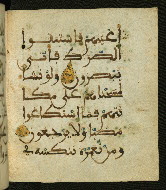 أعينهم فاستبقوا
الصرط فأنى
يبصرون ولو نشاء
لمسخنهم على مكا
نتهم فما استطعوا
مضيا ولا يرجعون
ومن نعمره ننكسه في